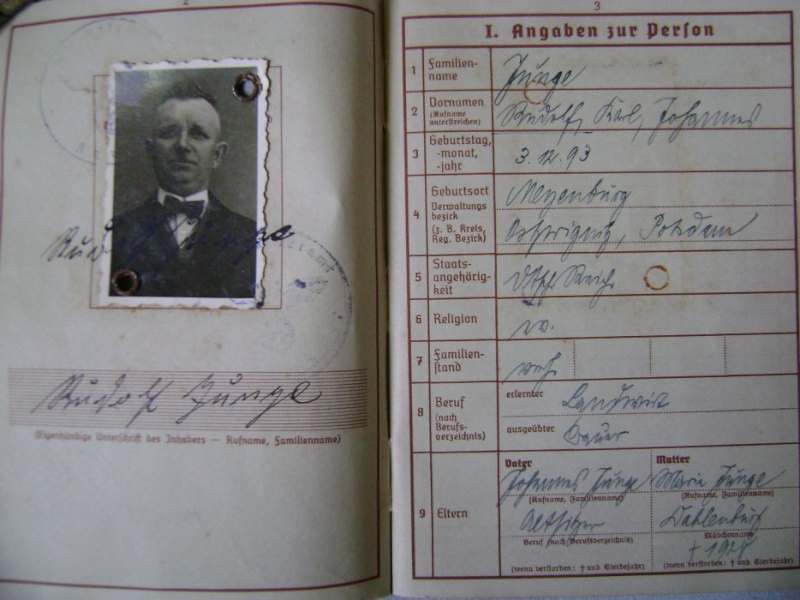 2
Rudolf Junge
Rudolf Junge
(Eigenhändige Unterschrift des Inhabers — Rufname, Familienname)
3
I. Angaben zur Person
1 Familien-
name
Junge
2 Vornamen
(Rufname
unterstreichen)
Rudolf, Karl, Johannes
3 Geburtstag,
-monat,
-jahr
3.12.93
4 Geburtsort
Verwaltungs
bezirk
(z. B. Kreis,
Reg. Bezirk)
Meyenburg
Ostprignitz, Potsdam
5 Staats-
angehörig-
keit
Dtsch. Reich
6 Religion
ev.
7 Familien-
stand
verh.
8 Beruf
(nach
Berufs-
verzeichnis)
erlernter Landwirt
ausgeübter Bauer
9 Eltern
Vater Mutter
Johannes Junge Maria Junge
(Rufname, Familienname) (Rufname, Familienname)
Altsitzer Dahlenburg
Beruf (nach Berufsverzeichnis) Mädchenname
† 1928
(wenn verstorben: † und Sterbejahr) (wenn verstorben: † und Sterbejahr)